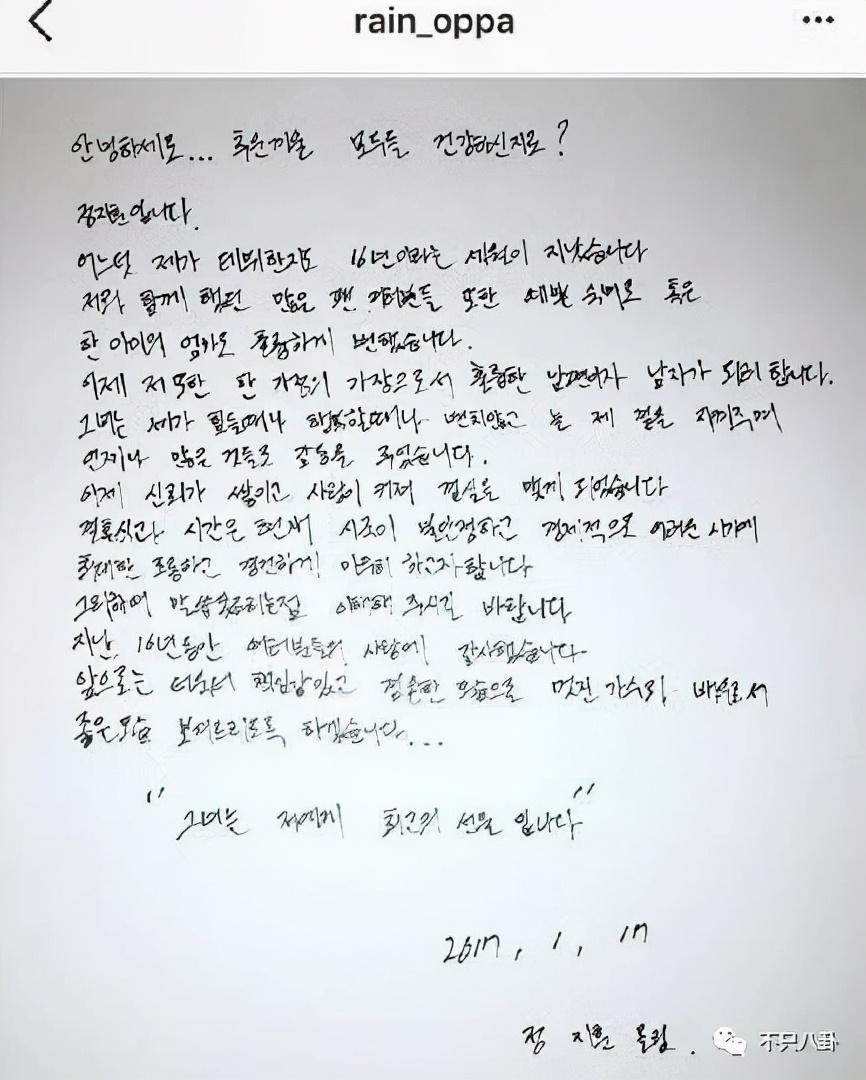 rain_oppa
안녕하세요... 추운겨울 모두들 건강하신지요?
정지훈입니다.
어느덧 제가 데뷔한지도 16년이라는 세월이 지났습니다
저와 함께 했던 많은 팬 여러분들 또한 예쁜 숙녀로 혹은
한 아이의 엄마로 훌륭하게 변했습니다.
이제 저 또한 한 가정의 가장으로서 훌륭한 남편이자 남자가 되려 합니다.
그녀는 제가 힘들때나 행복할때나 변치않고 늘 제 곁을 지켜주며
언제나 많은 것들로 감동을 주었습니다.
이제 신뢰가 쌓이고 사랑이 커져 결실을 맺게 되었습니다
결혼식과 시간은 현재 시국이 불안정하고 경제적으로 어려운 시기에
최대한 조용하고 경건하게 하고자합니다
그리하여 말씀못드리는점 이해해 주시길 바랍니다
지난 16년동안 여러분들의 사랑에 감사했습니다
앞으로는 더욱더 책임감있고 겸손한 모습으로 멋진 가수와 배우로서
좋은모습 보여드리도록 하겠습니다...
"그녀는 저에게 최고의 선물 입니다"
2017, 1, 17
정 지훈 올림.
不只八卦